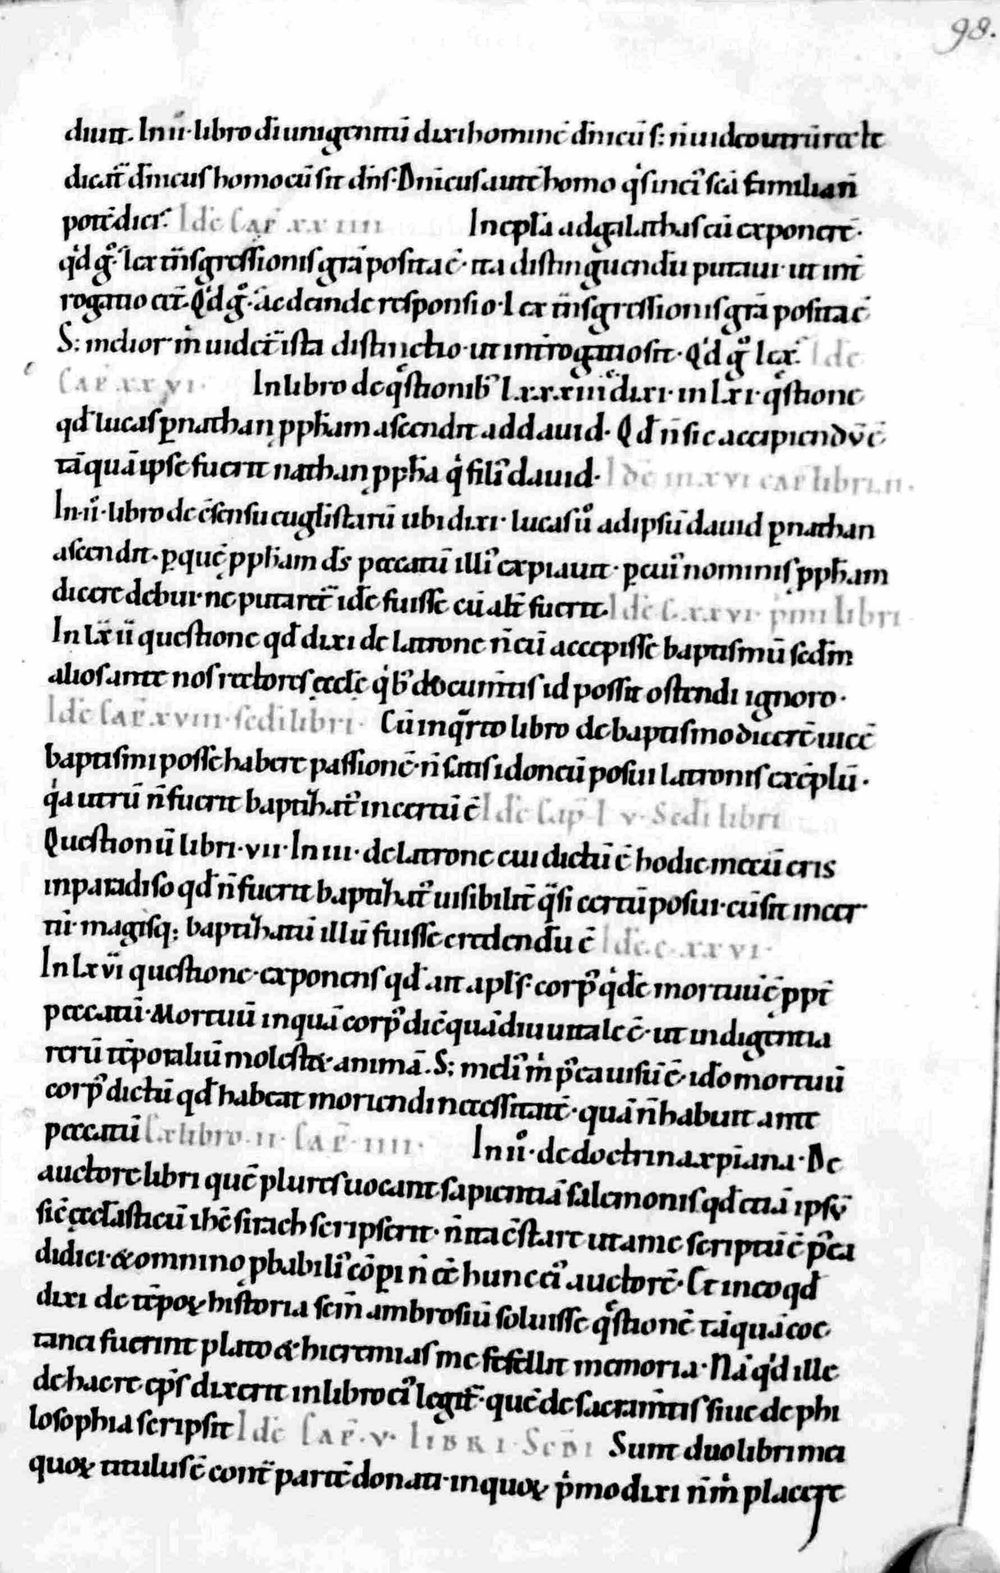 98.
diuit. In ii · libro diuiniguentiū dixi hominē dn̄icū s; n̄ uideo utrū recte
dicat̄ dn̄icus homo cū sit dn̄s. Dn̄icus aut̄ homo q̇s in ei' sc̄a familia n̄
potē dici. Idē Cap̄ xxiiii In epl̄a ad galathas cū exponerē ·
q̇d g̊. Lex t̄nsgressionis gr̄a posita ē · ita distinguendū putaui · ut int̄
rogatio eēt. Q̇d g̊ · ac deinde responsio · Lex t̄nsgressionis gr̄a posita ē
S; melior ṁ uidet̄ ista distinctio · ut int̄rogatio sit · Q̇d g̊ lex. Idē
Cap̄ xxvi · In libro de q̄stionib; lxxxiii dixi · in lxi · q̄stione
qd̄ lucas ꝑ nathan ꝓph̄am ascendit ad dauid · Qd̄ n̄ sic accipiendū ē
tāquā ipse fuerit nathan ꝓph̄a q̇ fili' dauid · Idē in xvi cap̄ libri .ii ·
In · ii̊ · libro de c̄sensu euḡlistarū ubi dixi · lucas ū̊ ad ipsū dauid ꝑ nathan
ascendit · ꝑ quē ꝓph̄am ds̄ peccatū illi' expiauit · ꝑ cui' nominis ꝓph̄am
dicere debui · ne putaret̄ idē fuisse cū alt̄ fuerit. Idē C. xxvi · p̄mi libri
In lx ii questione qd̄ dixi de latrone n̄ eū accepisse baptismū sed̄m
alios ante nos rectores ęccl̄e q̇b; documt̄is id possit ostendi ignoro ·
Idē Cap̄ xviii · sc̄di libri · Cū in q̄rto libro de baptismo dicerē uicē
baptismi posse habere passionē · n̄ satis idoneū posui latronis exēplū ·
q̇a utrū n̄ fuerit baptizat' incertū ē Idē Cap̄ lv · Sc̄di libri
Questionū libri · vii · In iii · de latrone cui dictū ē hodie mecū eris
in paradiso qd̄ n̄ fuerit baptizat' uisibilit̄ q̄si certū posui · cū sit incer
tū · magisq; baptizatū illū fuisse credendū ē Idē · c · xxvi ·
In lxvi questione · exponens qd̄ ait apl̄s · corp' q̇dē mortuū ē ꝓpt̄
peccatū · Mortuū inquā corp' dic̄ quādiu tale ē · ut indigentia
rerū tēporaliū molestet animā. S; meli' ṁ p'ea uisū ē · ido mortuū
corp' dictū qd̄ habeat moriendi necessitatē · quā n̄ habuit ante
peccatū Ex libro · ii · Cap̄ · iiii · In ii̊ · de doctrina xp̄iana · De
auctore libri quē plures uocant sapientiā salemonis qd̄ etiā ipsū
sic̄ ęccl̄asticū ih̄c sirach scripserit · n̄ ita c̄stare ut a me scriptū ē p'ea
didici · & omnino ꝓbabili' cōperi n̄ eē hunc ei' auctorē · Et in eo qd̄
dixi de tēpoꝝ historia sc̄m ambrosiū soluisse q̄stionē tāquā coe
tanei fuerint plato & hieremias me fefellit memoria · Nā q̇d ille
de hac re ep̄s dixerit in libro ei' legit̄ · quē de sacramt̄is siue de phi
losophia scripsit Idē Cap̄ · v · LIBRI · Sc̄DI Sunt duo libri mei
quoꝝ titulus ē cont̄ partē donati · in quoꝝ p̄mo dixi n̄ ṁ placere